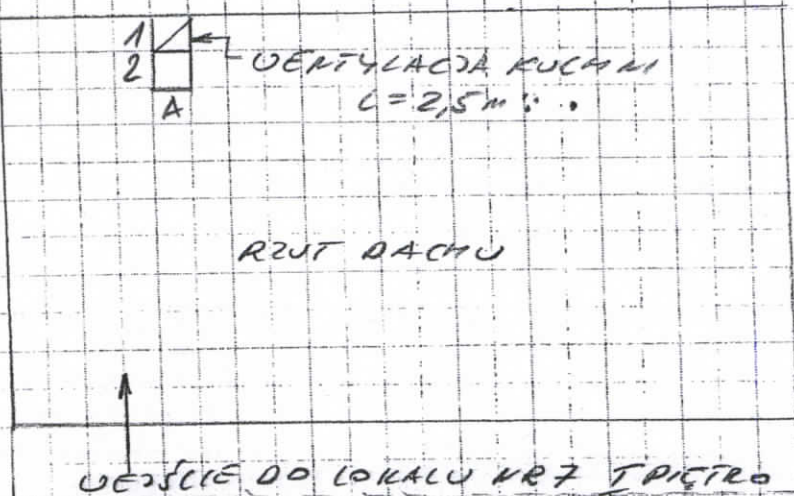 1
2
A
WENTYLACJA KUCHNI
L=2,5m
RZUT DACHU
WEJŚCIE DO LOKALU NR 7 I PIĘTRO